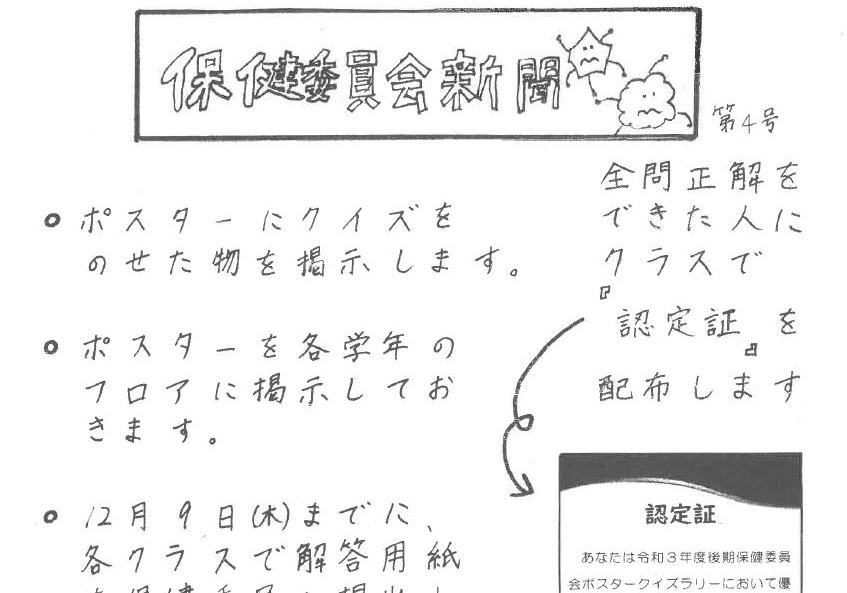 保健委員会新聞
第4号
ポスターにクイズを
のせた物を掲示します。
ポスターを各学年の
フロアに掲示してお
きます。
12月9日(木)までに、
各クラスで解答用紙
全問正解を
できた人に
クラスで
『認定証』を
配布します
認定証
あなたは令和3年度後期保健委員
会ポスタークイズラリーにおいて優